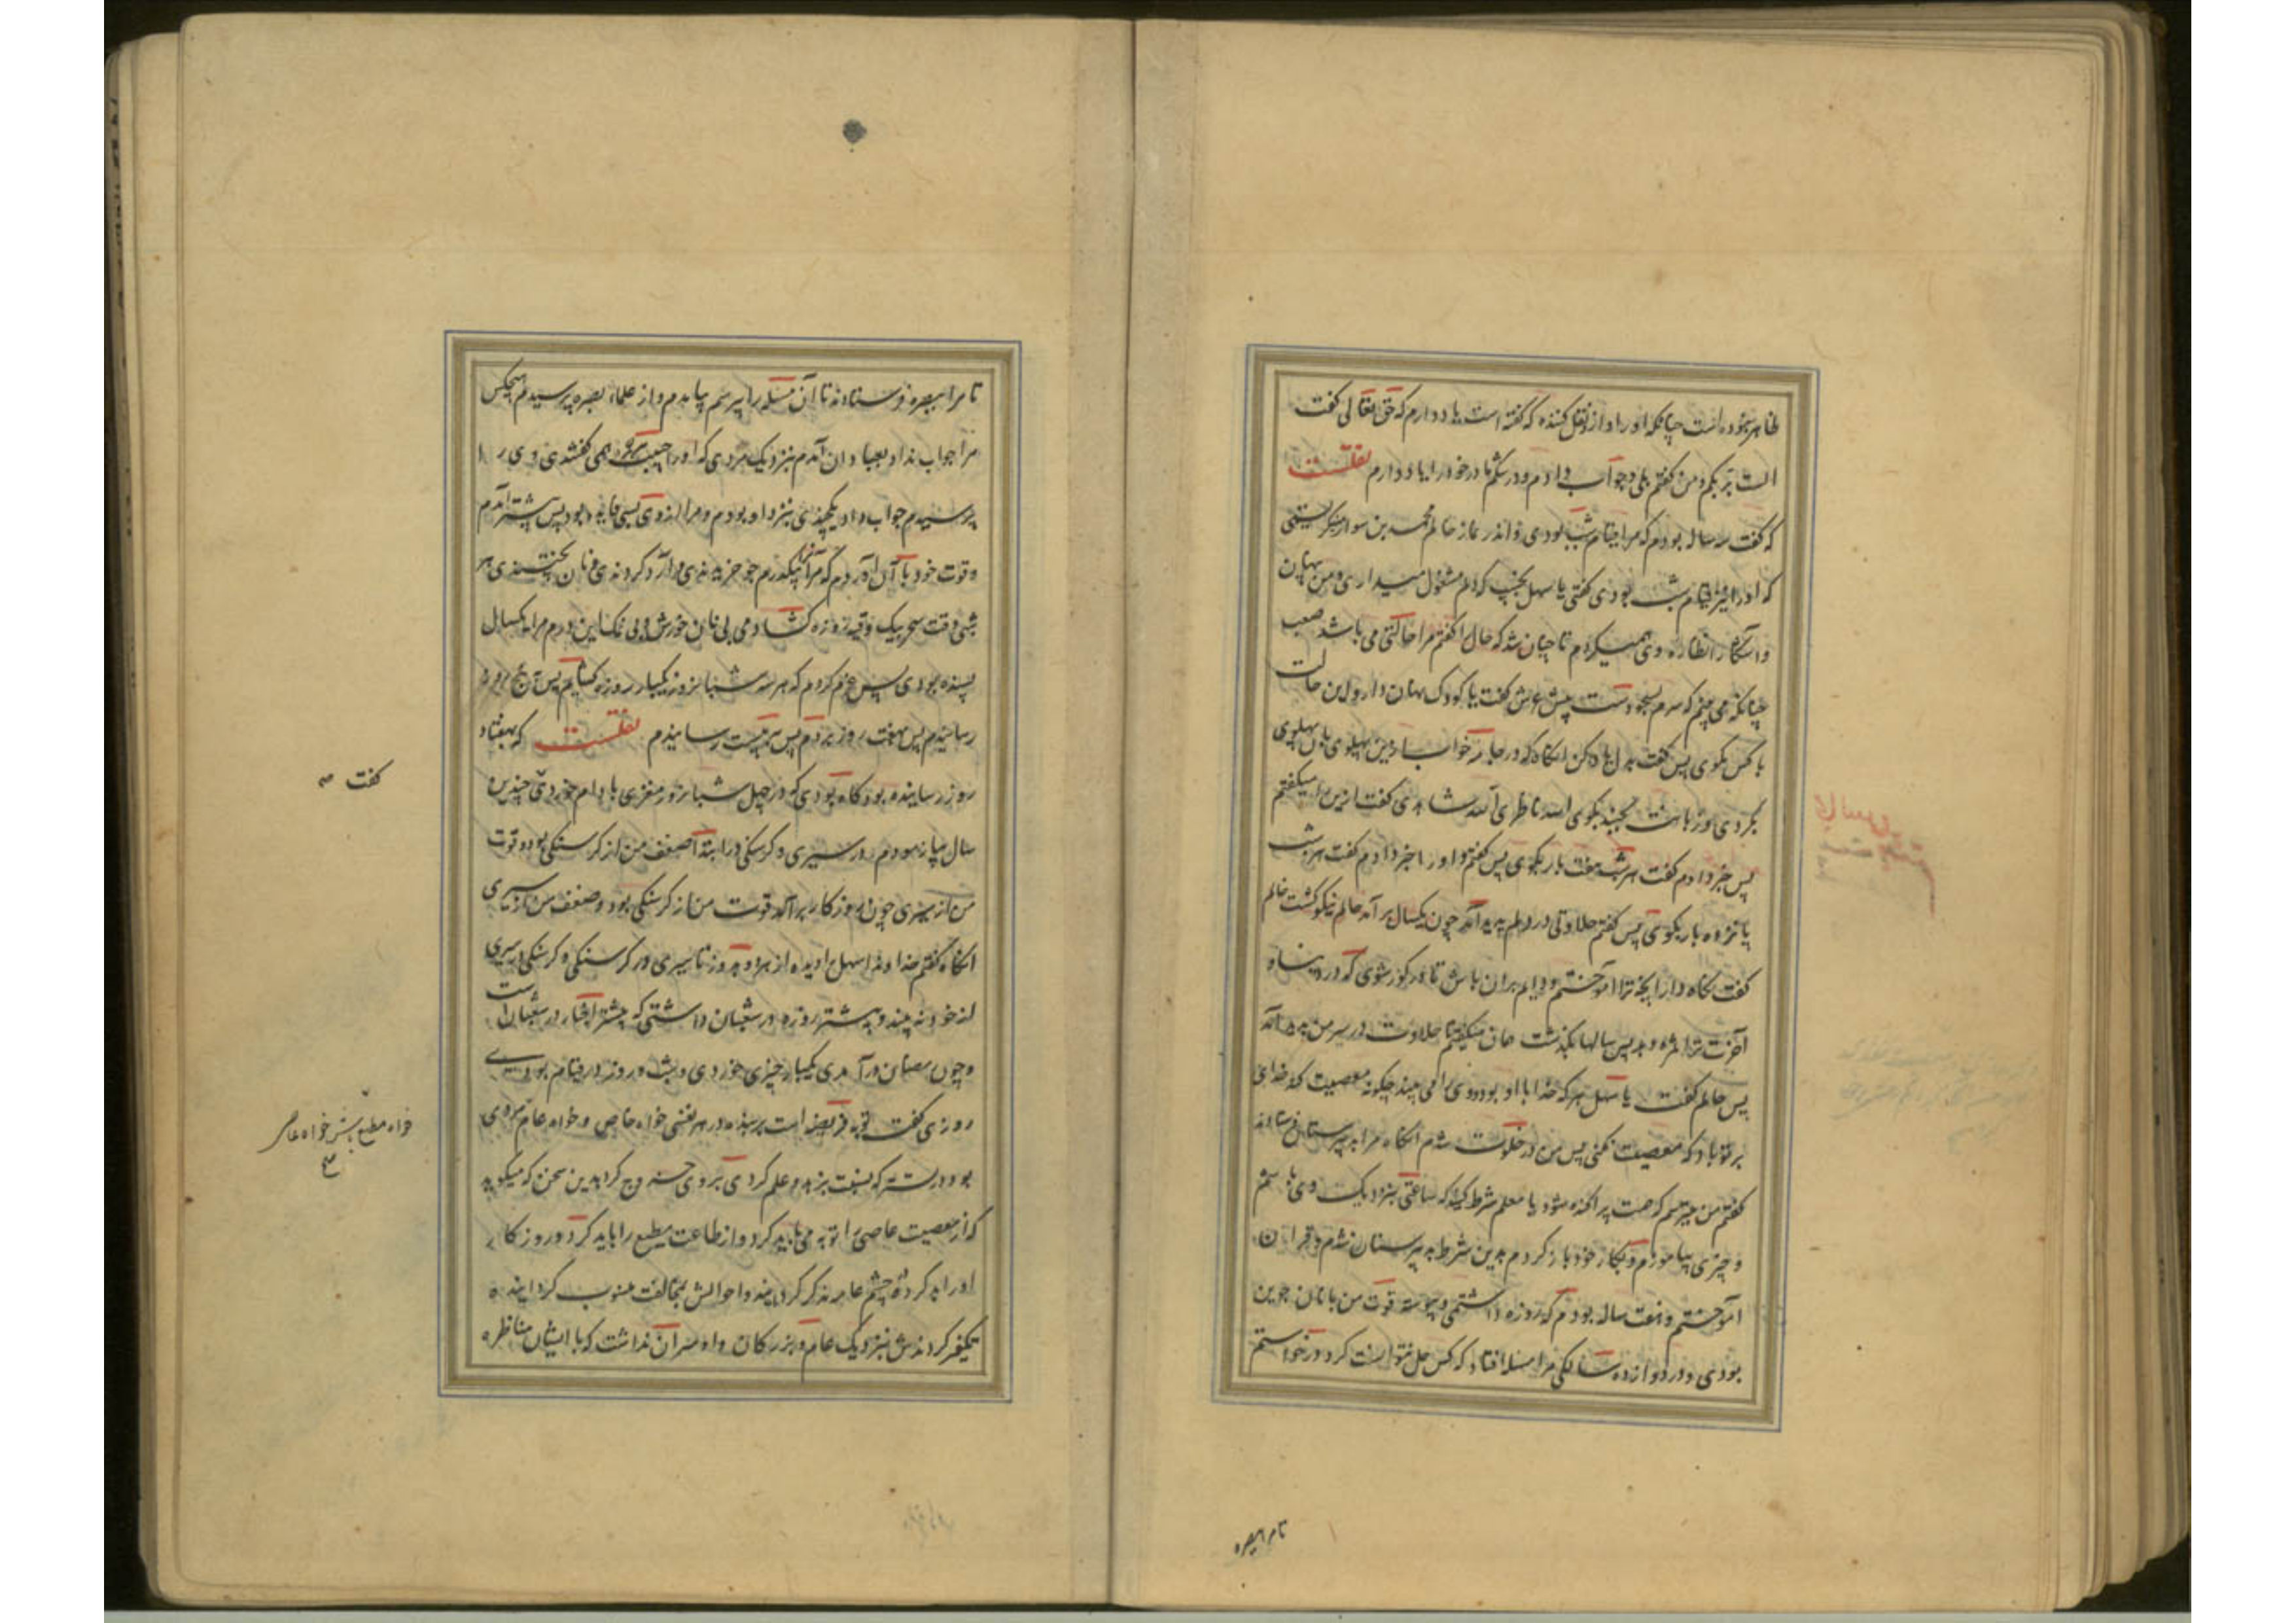 ظاهر بخودداشت چنانکه او را و از و نقل کنند که گفته است یاد دارم که حق تعالی گفت
الست بربکم و من گفتم بلی و جواب دادم و در شکم مادر خود را یاد دارم نقلست
که گفت سه ساله بودم که مرا قیام شب بودی و اندر نماز خالم محمد بن سوار میگریستمی
که او را نیز قیام شب بودی گفتی یا سهل بخسب که دلم مشغول میداری و من پنهان
و آشکارا نظاره وی میکردم تا چنان شد که خال را گفتم مرا حالتی می باشد صعب
چنانکه می بینم که سرم بسجودست پیش عرش گفت یا کودک نهان دار و این حالت
با کس مگوی پس گفت بدل یاد کن آنگاه که در جامه خواب ازین پهلوی بآن پهلوی
گردی و زبانت بجنبد بگوی الله ناظری الله شاهدی گفت این را میگفتم
پس خبر دادم گفت هر شب هفت بار بگوی پس گفتم و او را خبر دادم گفت هر شب
پانزده بار بگوی پس گفتم حلاوتی در دلم پدید آمد چون یکسال برآمد خالم نیکو گشت خالم
گفت نگاه دار آنچه ترا آموختم و دایم بران باش تا در گور شوی که در دنیا و
آخرت ترا ثمره دهد پس سالها بگذشت همان میگفتم تا حلاوت در سر من پدید آمد
پس خالم گفت یا سهل هر که خدا با او بود و وی را می بیند چگونه معصیت کند خدای
بر تو باد که معصیت نکنی پس من در خلوت شدم آنگاه مرا بدبیرستان فرستادند
گفتم من میترسم که همت پراکنده شود با معلم شرط کنید که ساعتی بنزدیک وی باشم
و چیزی بیاموزم و بکار خود بازگردم بدین شرط بدبیرستان شدم و قرآن
آموختم و هفت ساله بودم که روزه داشتمی و پیوسته قوت من با نان جوین
بودی و در دوازده سالگی مرا مسله افتاد که کس حل نتوانست کرد درخواستم
تا مرا ببصره
تا مرا ببصره فرستادند تا آن مسله را بپرسم بیامدم و از علماء بصره پرسیدم هیچکس
مرا جواب نداد بعبادان آمدم بنزدیک مردی که او را حبیب حمزه همی گفتندی وی را
پرسیدم جواب داد یکچندی بنزد او بودم و مرا از وی بسی فایده بود پس بتستر آمدم
و قوت خود با آن آوردم که مرا بیکدرم جو خریدندی و آرد کردندی و نان پختندی هر
شبی وقت سحر بیک وقیه روزه گشادمی بی نان خورش و بی نمک این درم مرا یکسال
بسنده بودی پس عزم کردم که هر سه شبانروز یکبار روزه گشایم پس تا پنج روز
رسانیدم پس بهفت روز بردم پس به بیست رسانیدم نقلست که بهفتاد
روز رسانیده بود و گاه بودی که در چهل شبانروز مغزی بادام خوردی چندین
سال بیازمودم در سیری و گرسنگی در ابتدا ضعف من از گرسنگی بود و قوت
من از سیری چون روزگار برآمد قوت من از گرسنگی بود و ضعف من از سیری
آنگاه گفتم خداوندا سهل را دیده از هر دو بدوز تا سیری در گرسنگی و گرسنگی در سیری
از خود نه بیند و بیشتر روزه در شعبان داشتی که بیشتر اخبار در شعبان است
و چون رمضان درآمدی یکبار چیزی خوردی و شب و روز در قیام بودی
روزی گفت توبه فریضه است بر بنده در هر نفسی خواه خاص و خواه عام مردی
بود در تستر که نسبت بزهد و علم کردی بر وی خروج کرد بدین سخن که میگوید
که از معصیت عاصی را توبه می باید کرد و از طاعت مطیع را باید کرد و روزگار
او را بد کرد در چشم عامه بد کرد گردیدند و احوالش بمخالفت منسوب گردانیدند
تکفیر کردندش بنزدیک عام و بزرگان و او سر آن نداشت که با ایشان مناظره
گفت
خواه مطیع باشد خواه عاصی